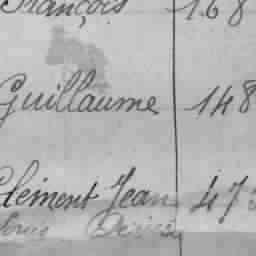 François 168
Guillaume 148
Clément Jean 47